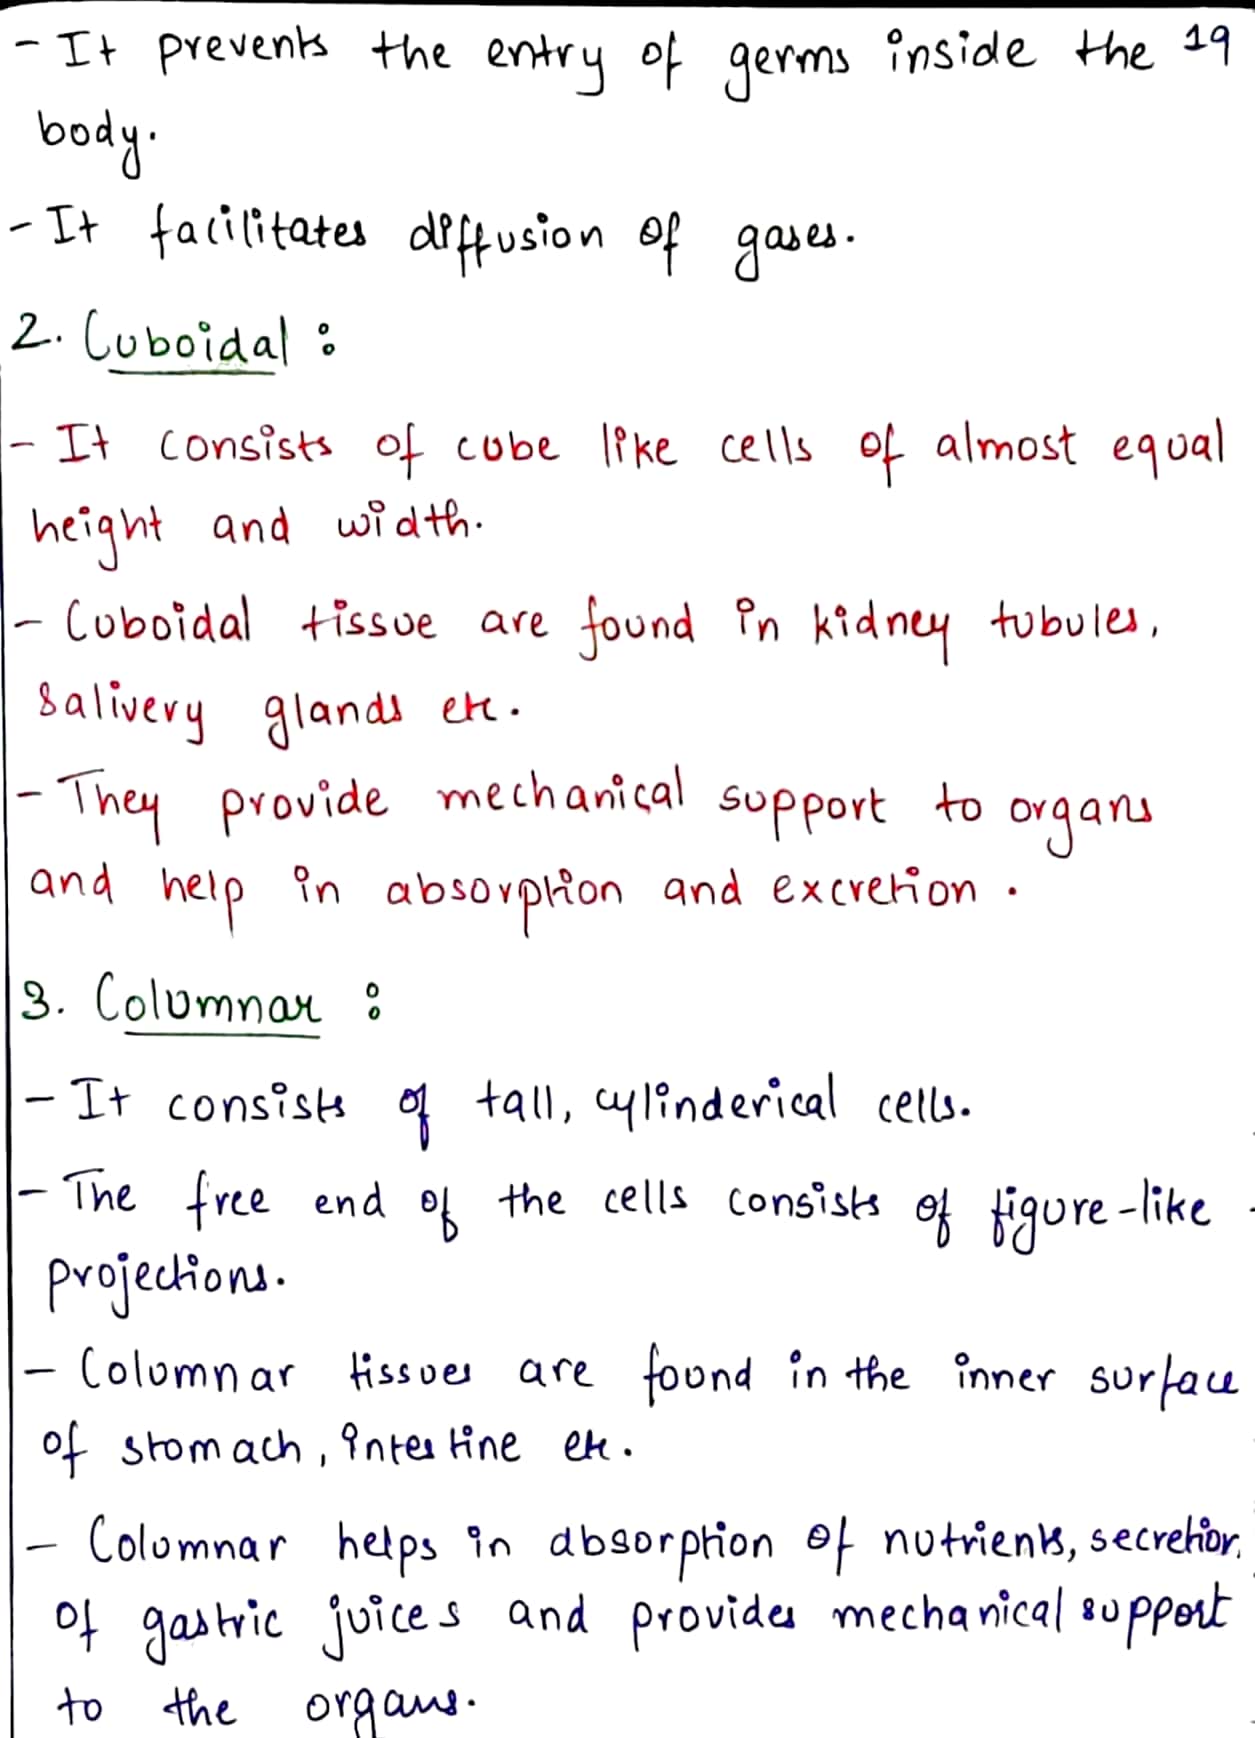 - It prevents the entry of germs inside the 19
body.
- It facilitates diffusion of gases.
2. Cuboidal :
- It consists of cube like cells of almost equal
height and width.
- Cuboidal tissue are found in kidney tubules,
salivery glands etc.
- They provide mechanical support to organs
and help in absorption and excretion.
3. Columnar :
- It consists of tall, cylinderical cells.
- The free end of the cells consists of figure-like
projections.
- Columnar tissues are found in the inner surface
of stomach, intestine etc.
- Columnar helps in absorption of nutrients, secretion
of gastric juices and provides mechanical support
to the organs.